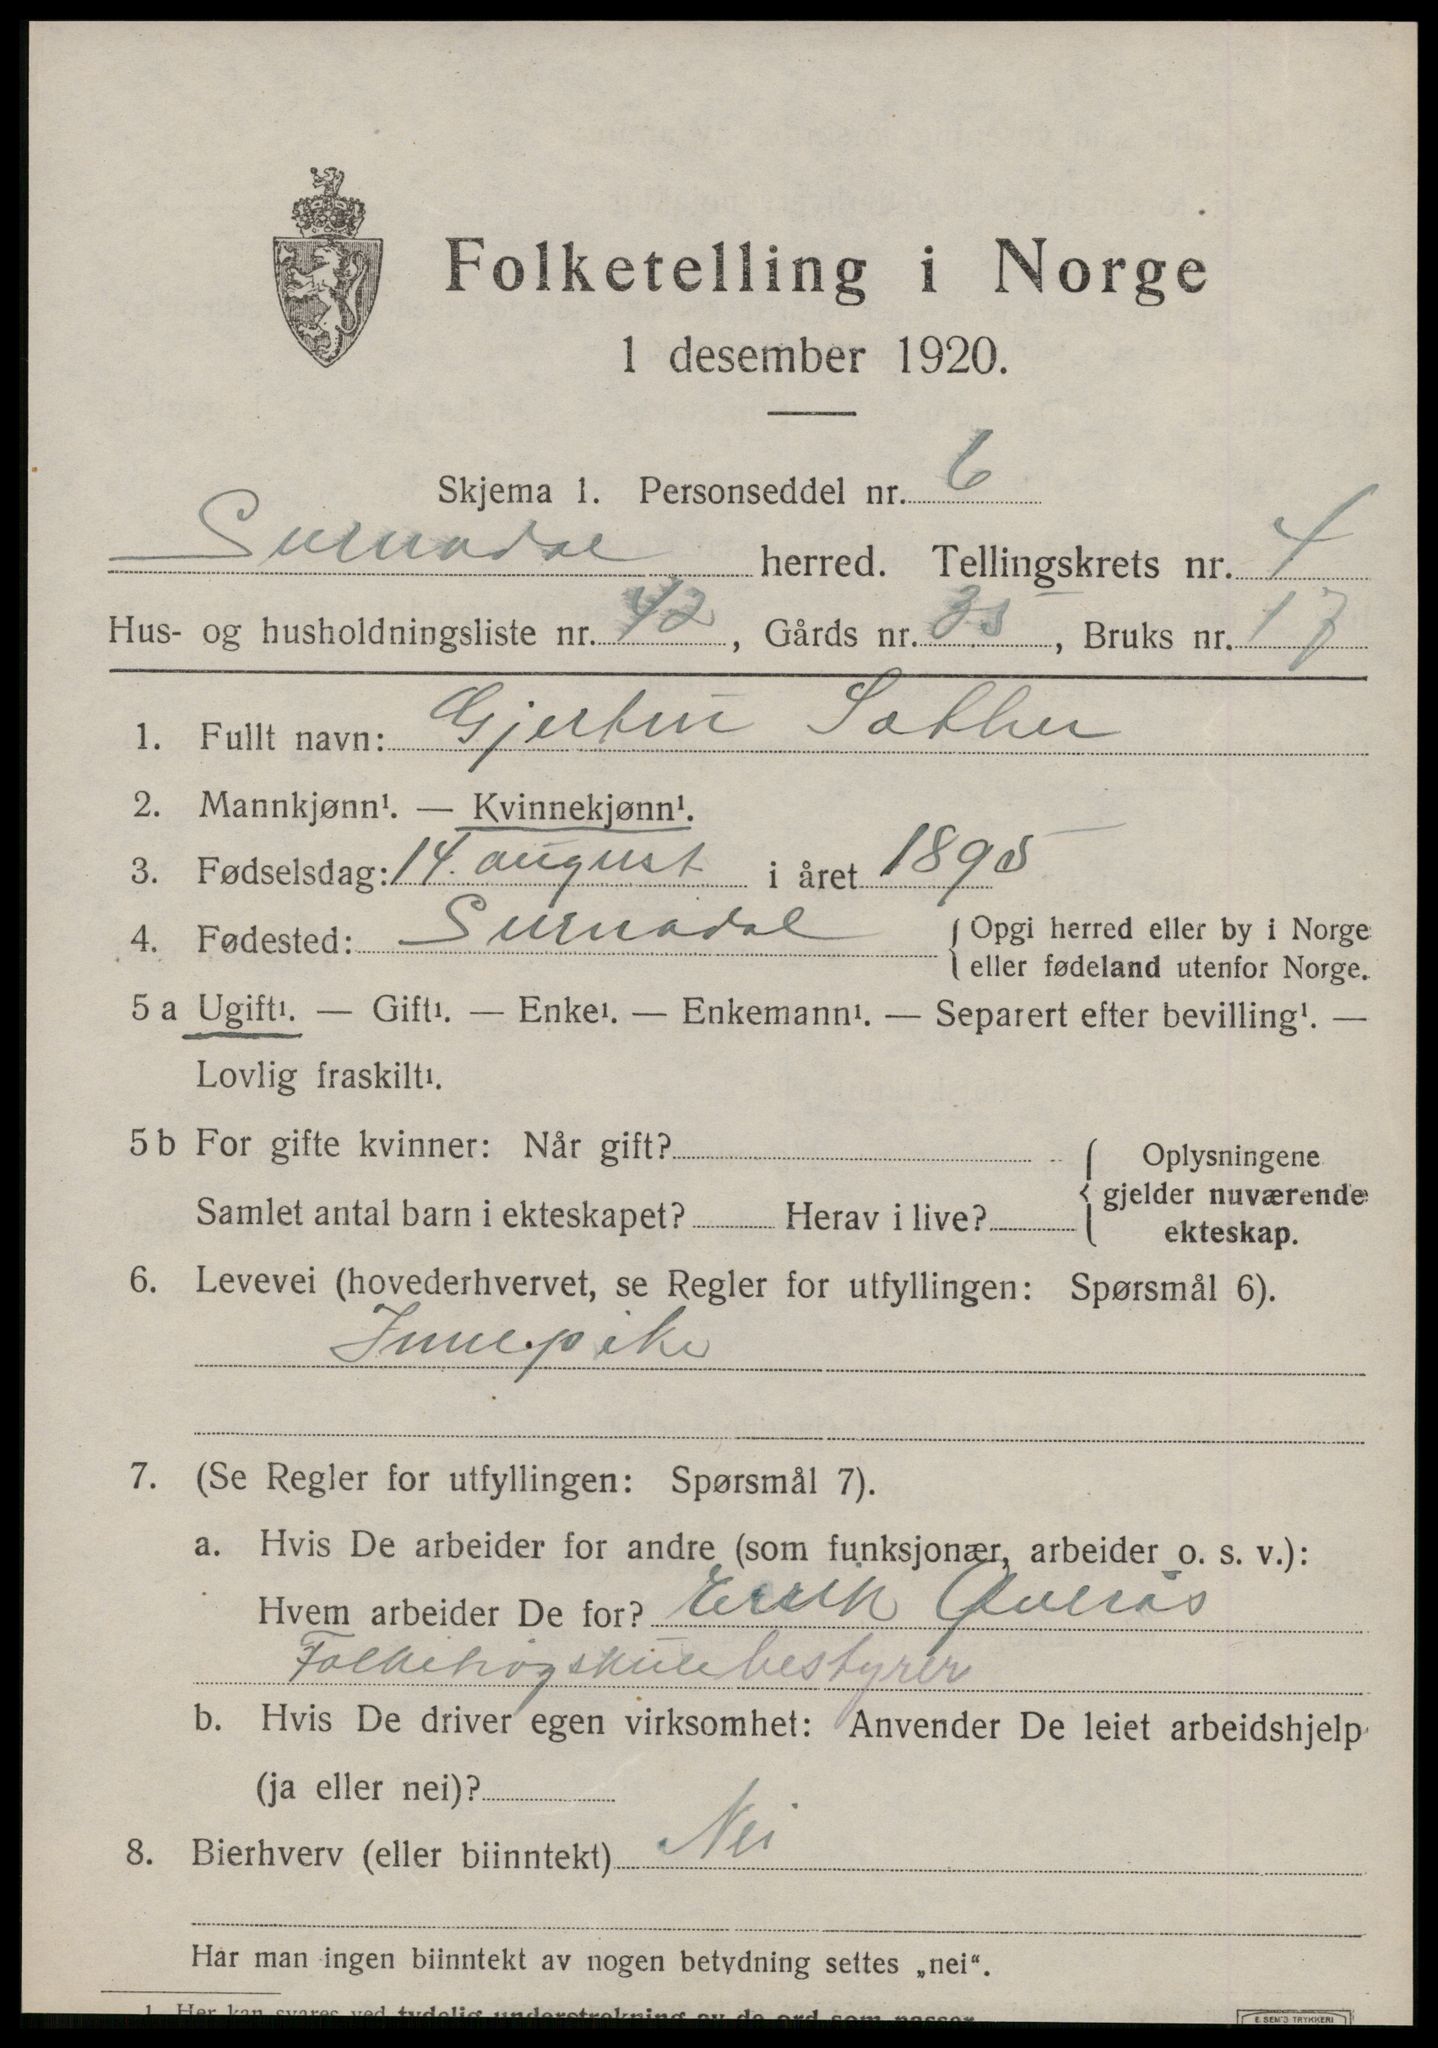 Folketelling i Norge
1 desember 1920.
Skjema 1. Personseddel nr. 6
Surnadal herred. Tellingskrets nr. 4
Hus- og husholdningsliste nr. 42, Gårds nr. 35, Bruks nr. 17
1. Fullt navn: Gjertine Sæther
2. Mannkjønn¹. — Kvinnekjønn¹.
3. Fødselsdag: 14. august i året 1895
4. Fødested: Surnadal { Opgi herred eller by i Norge
eller fødeland utenfor Norge.
5 a Ugift¹. — Gift¹. — Enke¹. — Enkemann¹. — Separert efter bevilling¹. —
Lovlig fraskilt¹.
5 b For gifte kvinner: Når gift? { Oplysningene
Samlet antal barn i ekteskapet? Herav i live? gjelder nuværende
ekteskap.
6. Levevei (hovederhvervet, se Regler for utfyllingen: Spørsmål 6).
Innepike
7. (Se Regler for utfyllingen: Spørsmål 7).
a. Hvis De arbeider for andre (som funksjonær, arbeider o. s. v.):
Hvem arbeider De for? Erik Øverås
Folkehøgskulebestyrer
b. Hvis De driver egen virksomhet: Anvender De leiet arbeidshjelp
(ja eller nei)?
8. Bierhverv (eller biinntekt) Nei
Har man ingen biinntekt av nogen betydning settes „nei“.
1. Her kan svares ved tydelig understrekning av de ord som passer.
E. SEM'S TRYKKERI